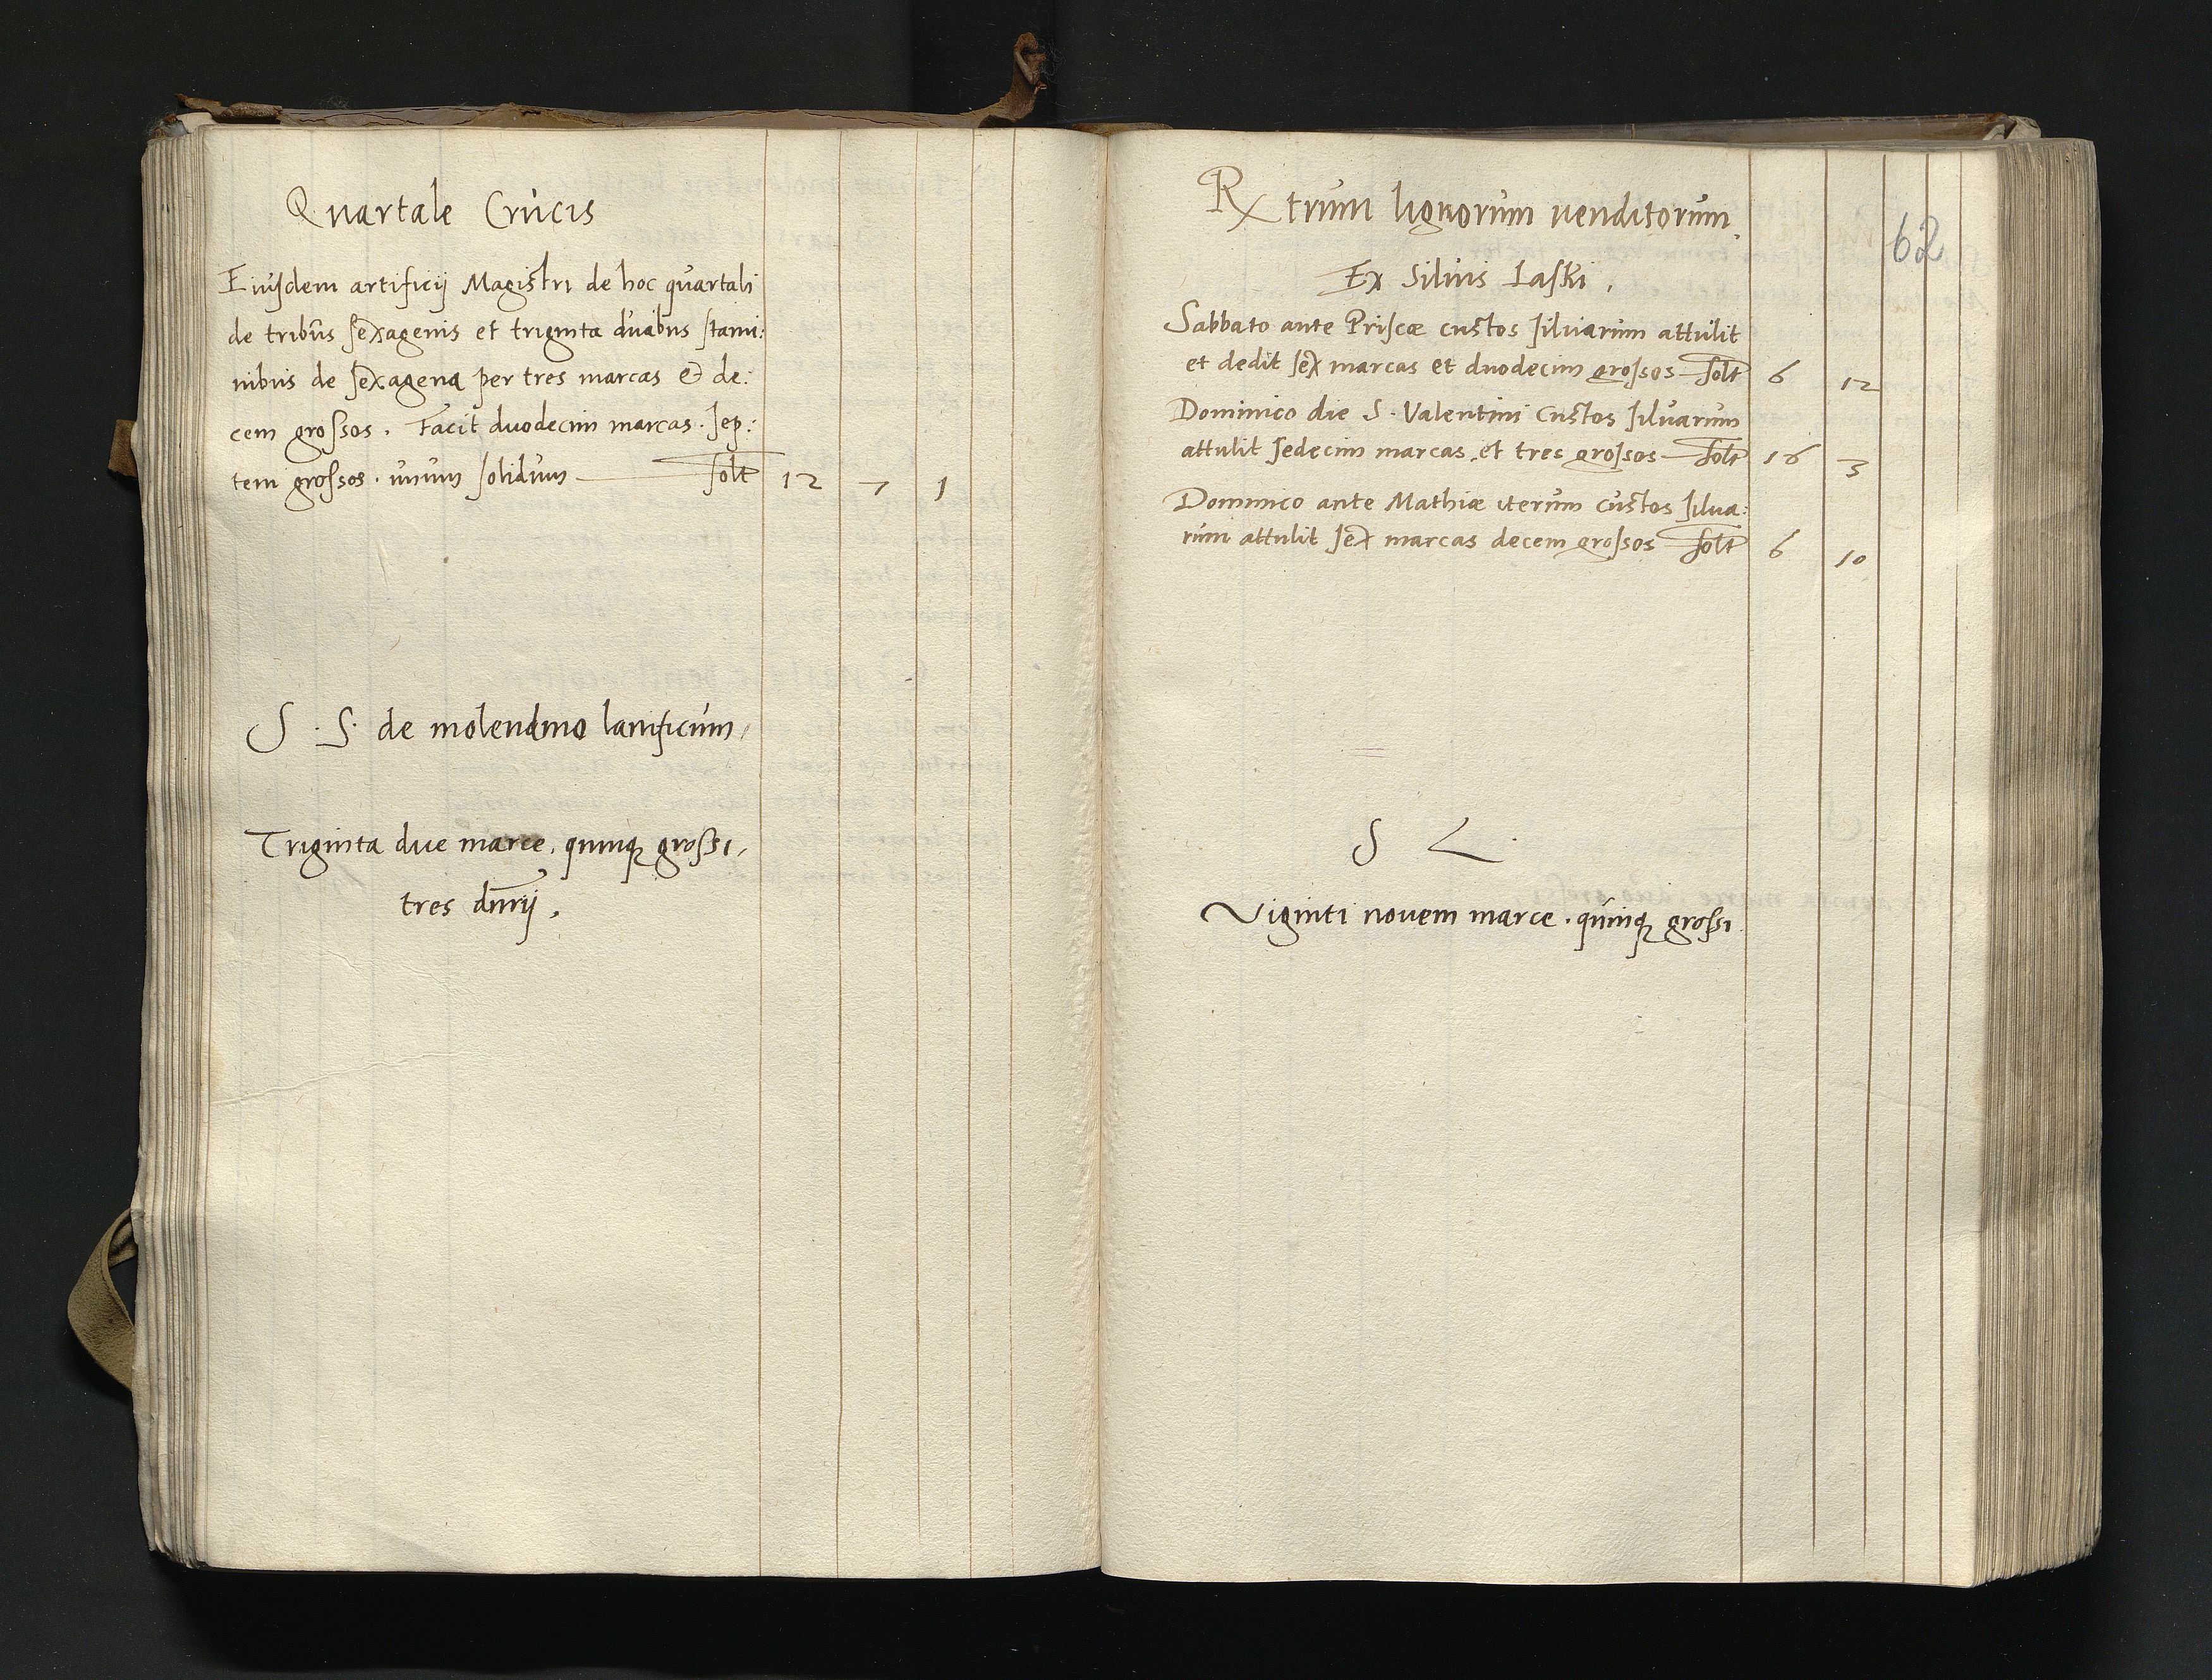 Quartale Crucis
Eiuſdem artificij Magiſtri de hoc quartali
de tribus ſexagenis et triginta duabus ſtami:
nibus de ſexagena per tres marcas & de:
cem groſsos. Facit duodecim marcas. ſep:
tem groſsos. unum ſolidum ſolt 12 7 1
S. S. de molendino lanificum,
Triginta due marce. quinqꝫ groſsi,
tres dnrij.
62
Rx trum lignorum uenditorum.
Ex Siluis Laſki.
Sabbato ante Priſcæ cuſtos ſiluiarum attulit
et dedit ſex marcas et duodecim groſsos ſolt 6 12
Dominico die S. Valentini Cuſtos ſiluarum
attulit ſedecim marcas et tres groſsos ſolt 16 3
Dominico ante Mathiæ iterum cuſtos ſilua:
rum attulit ſex marcas decem groſsos ſolt 6 10
S L.
Viginti nouem marce. quinqꝫ groſsi